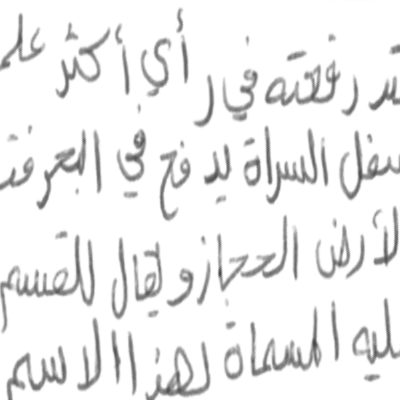 تد رقعته في ر أي أكثر علم
سفل السراة يد فع في البحر فت
لأرض الحجاز و يقال للقسم
ليه المسماة لهذا الاسم